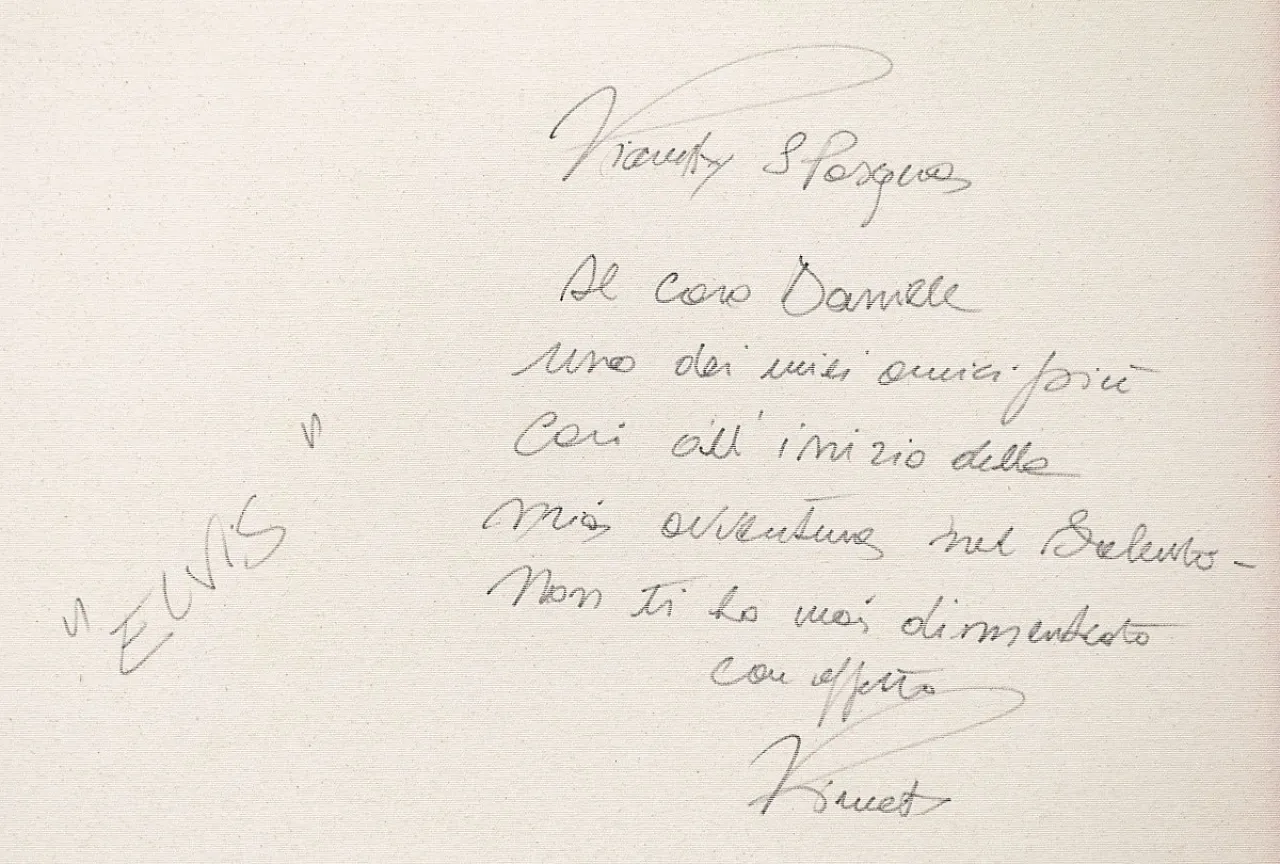 S Pasqua
Al caro Daniele
uno dei miei amici più
cari all'inizio della
mia avventura nel Salento -
Non ti ho mai dimenticato
con affetto
"ELVIS"